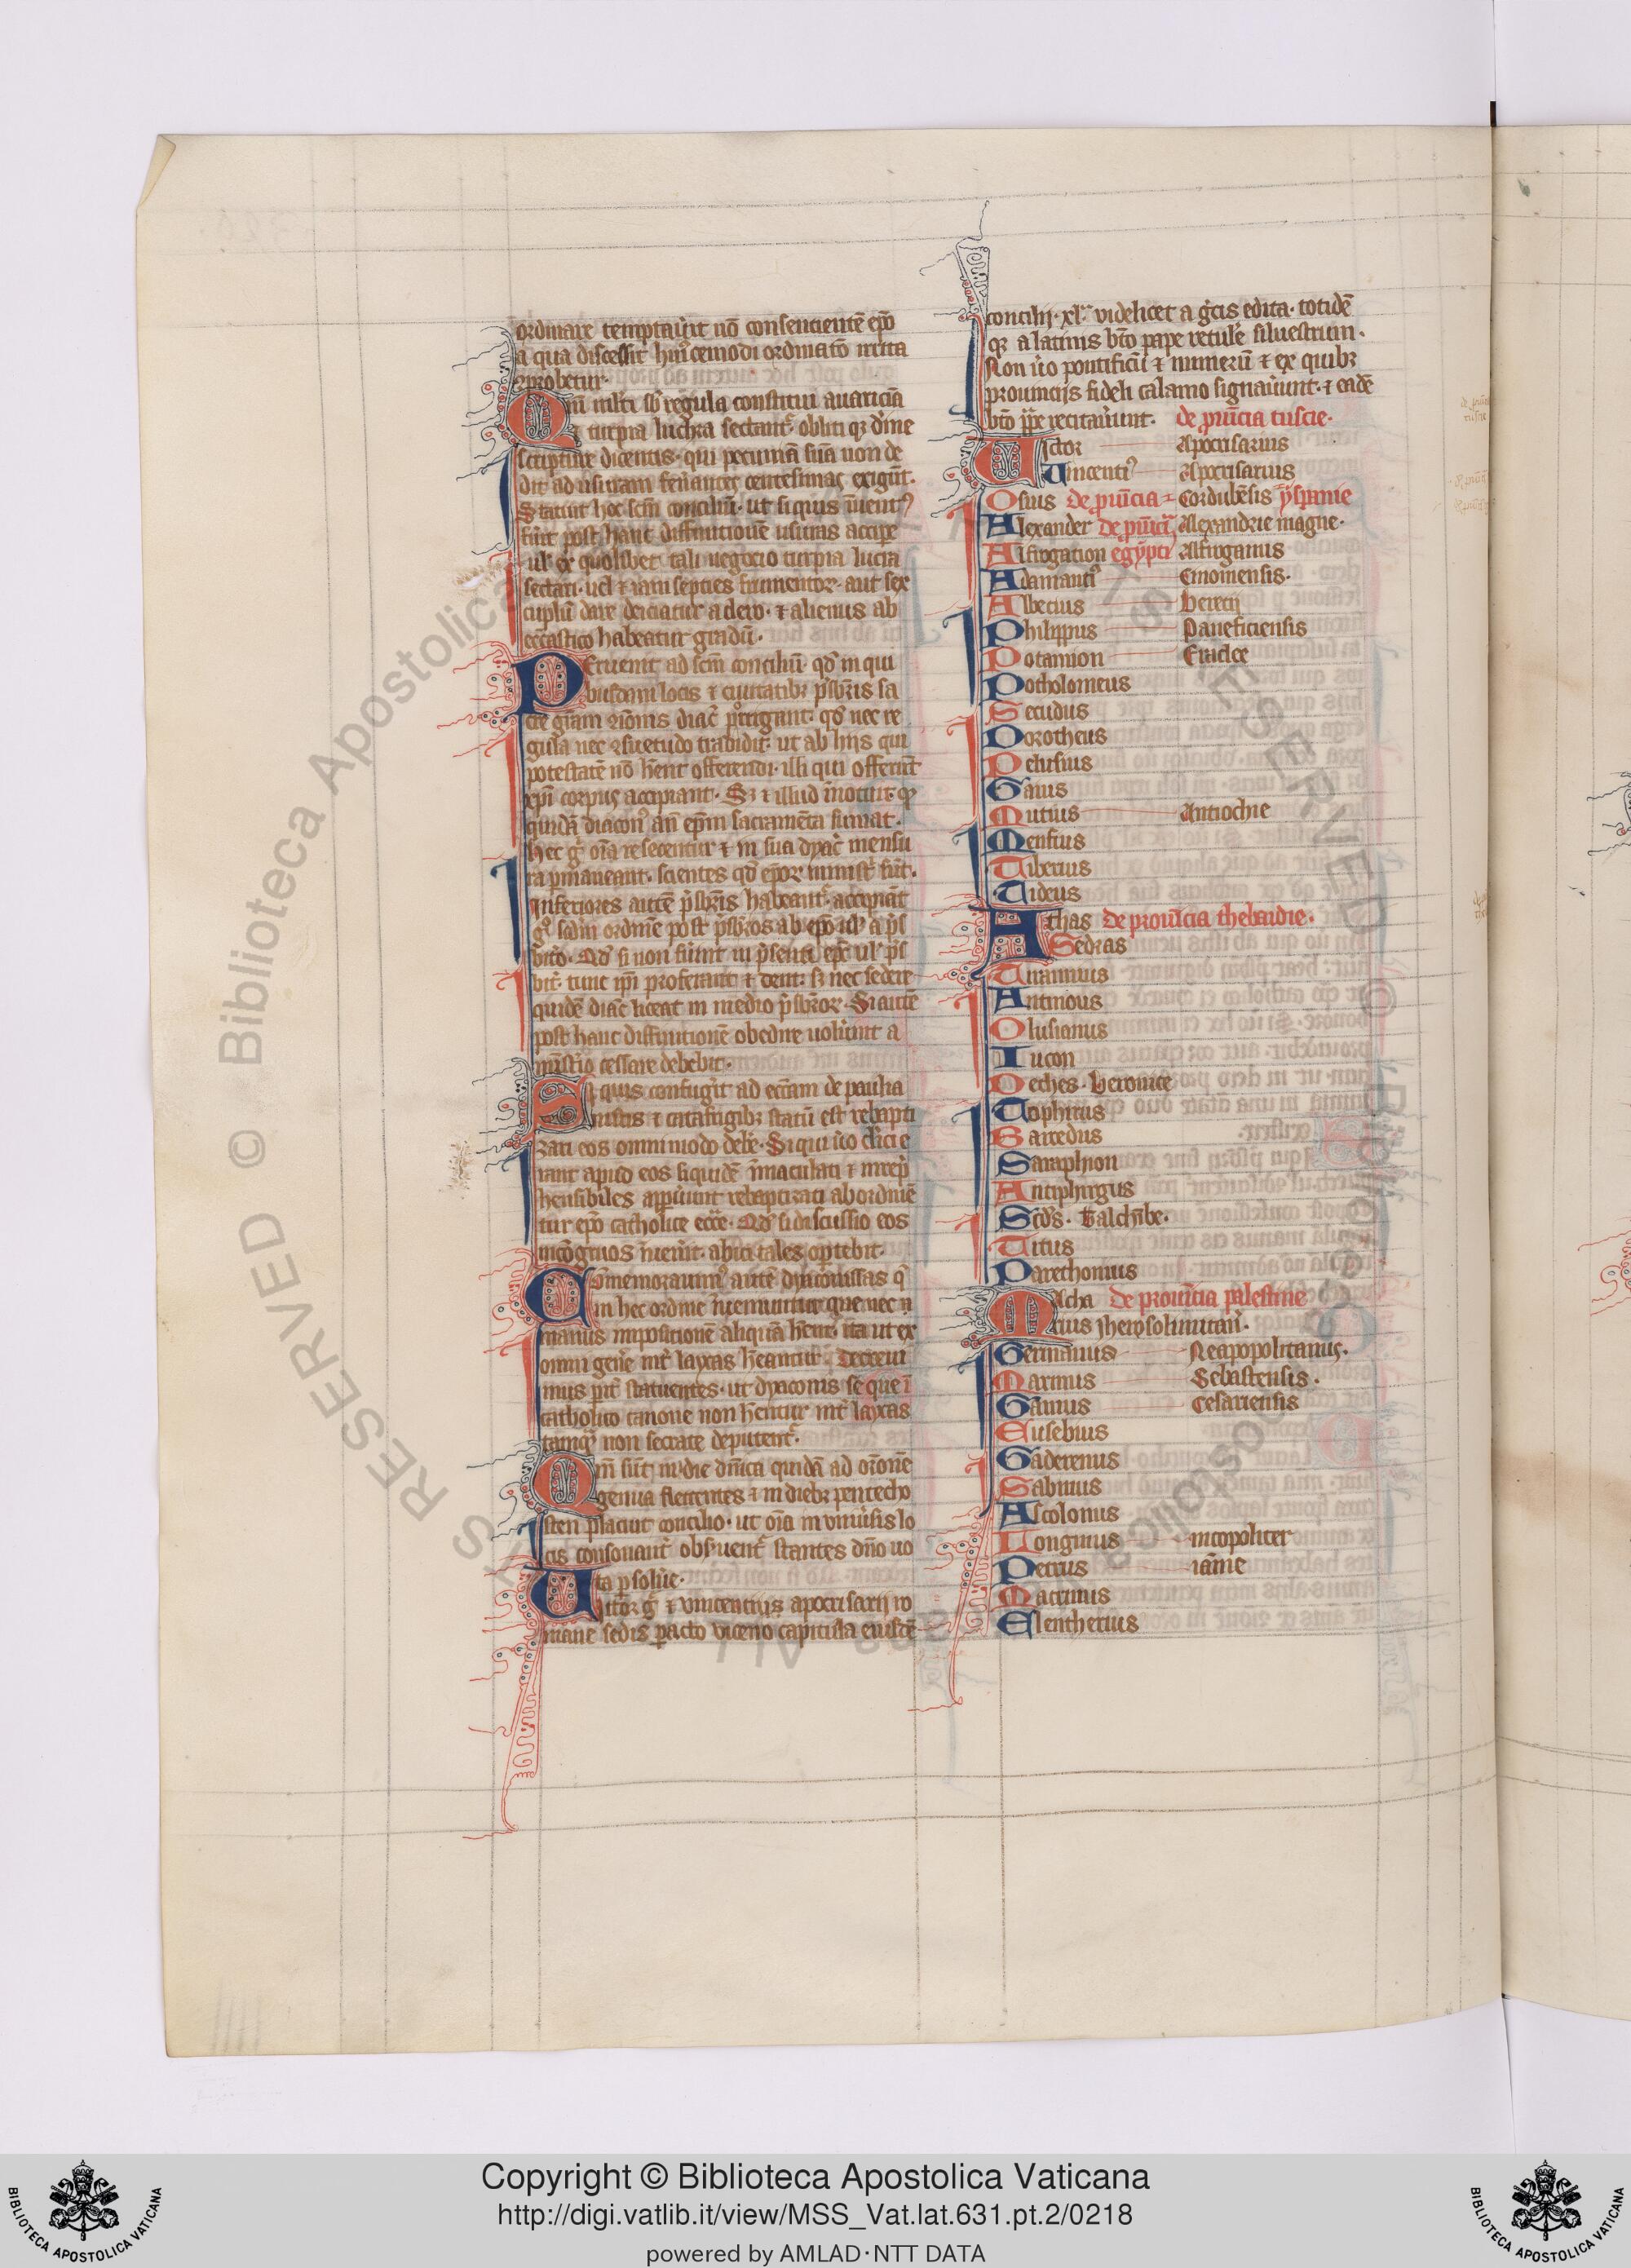 ordinare temptauĩt nõ consentientẽ ep̃o
a qua discessit hui᷒cemodi ordinatõ irrita
ꝯprobetur·
Qm̃ ml̃ti sb̃ regula constituti auariciã
⁊ turpia luchra sectant᷑ obliti qꝫ diuine
scripture dicentis· qui pecuniã suã non de
dit ad usuram fenantes centesimas exigũt·
Statuit hoc sc̃m conciliũ· ut si quis inuent᷒
fũit post hanc diffinitionẽ usuras accipe
uł ex quolibet tali negocio turpia lucra
sectari· uel etiam species frumentor̃· aut sex
cuplũ dare deiciatur a clero· ⁊ alienus ab
ecc̃astico habeatur gradu·
Peruenit ad sc̃m conciliũ qđ in qui
busdam locis ⁊ ciuitatibꝫ p̃sbr̃is sa
cre gr̃am diac̃ porrigant· qđ nec re
gula nec ꝯsuetudo tradidit· ut ab hiis qui
potestatẽ nõ hẽnt offerendi· illi qui offerunt
xp̃i corpus accipiant· Sꝫ ⁊ illud inotuit· qꝫ
quidã diacon᷒ an̄ ep̃m sacramẽta sumat·
hec g̊ oĩa resecentur ⁊ in sua dyac̃ mensu
ra p̱maneant· scientes qđ ep̃or̃ ministr̃ sũt·
Inferiores autẽ p̃sbr̃is habeant᷑ accipiãt
g̊ scđm ordinẽ post p̃sbr̃os ab ep̃o uł a p̃s
bitõ· Qđ si non fũint in p̃senti ep̃c uł p̃s
bit̃· tunc ip̃i proferant ⁊ dent· sꝫ nec sedere
quidẽ diac̃ liceat in medio p̃sbr̃or̃· Si autẽ
post hanc diffinitionẽ obedire noluĩt a
mĩstio cessare debebit·
Si quis confugit ad ecc̃am de paulia
nistis ⁊ catafrigibꝫ statũ est rebapti
zari eos omnimodo debẽ· Si qui uõ clici e
rant apud eos siquidẽ imaculati ⁊ irrep̃
hensibiles appuĩunt rebaptizati ab ordinẽ
tur ep̃o catholice ecc̃e· Qđ si discussio eos
incõgruos īueñit· abici tales op̱tebit·
Cõmemorauim᷒ autẽ dyaconissas q̃
in hec ordine īueniuntur que nec
manus impositionẽ aliquã hẽnt· ita ut ex
omni gen̄e int̃ layxas heantur· Decreui
mus pit̃ statuentes· ut dyaconis se que ĩ
catholico canone non hentur int̃ layxas
tamq̃ non secrate deputent᷑·
Qm̃ sũt in die dñica quidã ad or̃onẽ
genua flectentes ⁊ in diebꝫ pentecho
sten placuit concilio· ut oĩa in uniũsis lo
cis consonant᷑ obsuent᷑ stantes dño uo
ta p̱solũe·
Uictor g̊ ⁊ uincentius apocrisarij ro
mane sedis pacto uiceno capitula eiusdẽ
concilij· xl· videlicet a gr̃cis edita· totidẽ
qꝫ a latinis bt̃o pape retulẽ siluestrum·
Non ũo pontificũ ⁊ numerũ ⁊ ex quibꝫ
prouincijs fideli calamo signauĩunt· ⁊ eadẽ
bt̃o pp̃e recitauĩunt· de p̃uĩcia tuscie·
Uictor Apocrisarius
Uincenti᷒ Apocrisarius
Osius de p̃uĩcia Cordubẽsis yspanie
Alexander de p̃uĩci Alexandrie magne·
Alfirogation egypti Alfirganus
Adamanti᷒ Cinoinensis·
Albecius Berecij
Philippus Paneficiensis
Potamion Eraclee
Potholomeus
Secũdus
Dorotheus
Pelusius
Gaius
Mutius Antiochie
Menfius
Tiberius
Tideus
Athas de prouĩcia thebaidie·
Sedras
Tirannus
Antinous
Olusianus
Iucon
Peches· beronice
Tophitus
Garredus
Saraphion
Antiphrgus
Scđs· Talchibe·
Titus
Parethonius
Macha de prouĩcia palestine
rius Jherosolimitañ·
Germanus Neapopolitanus·
Marinus Sebastensis·
Gaiuus Cesariensis
Eusebius
Gaderenus
Sabinus
Ascolonus
Longinus nicopoliter
Petrus iãnie
Macrinus
Elentherius
Copyright © Biblioteca Apostolica Vaticana
http://digi.vatlib.it/view/MSS_Vat.lat.631.pt.2/0218
powered by AMLAD·NTT DATA
BIBLIOTECA APOSTOLICA VATICANA
BIBLIOTECA APOSTOLICA VATICANA